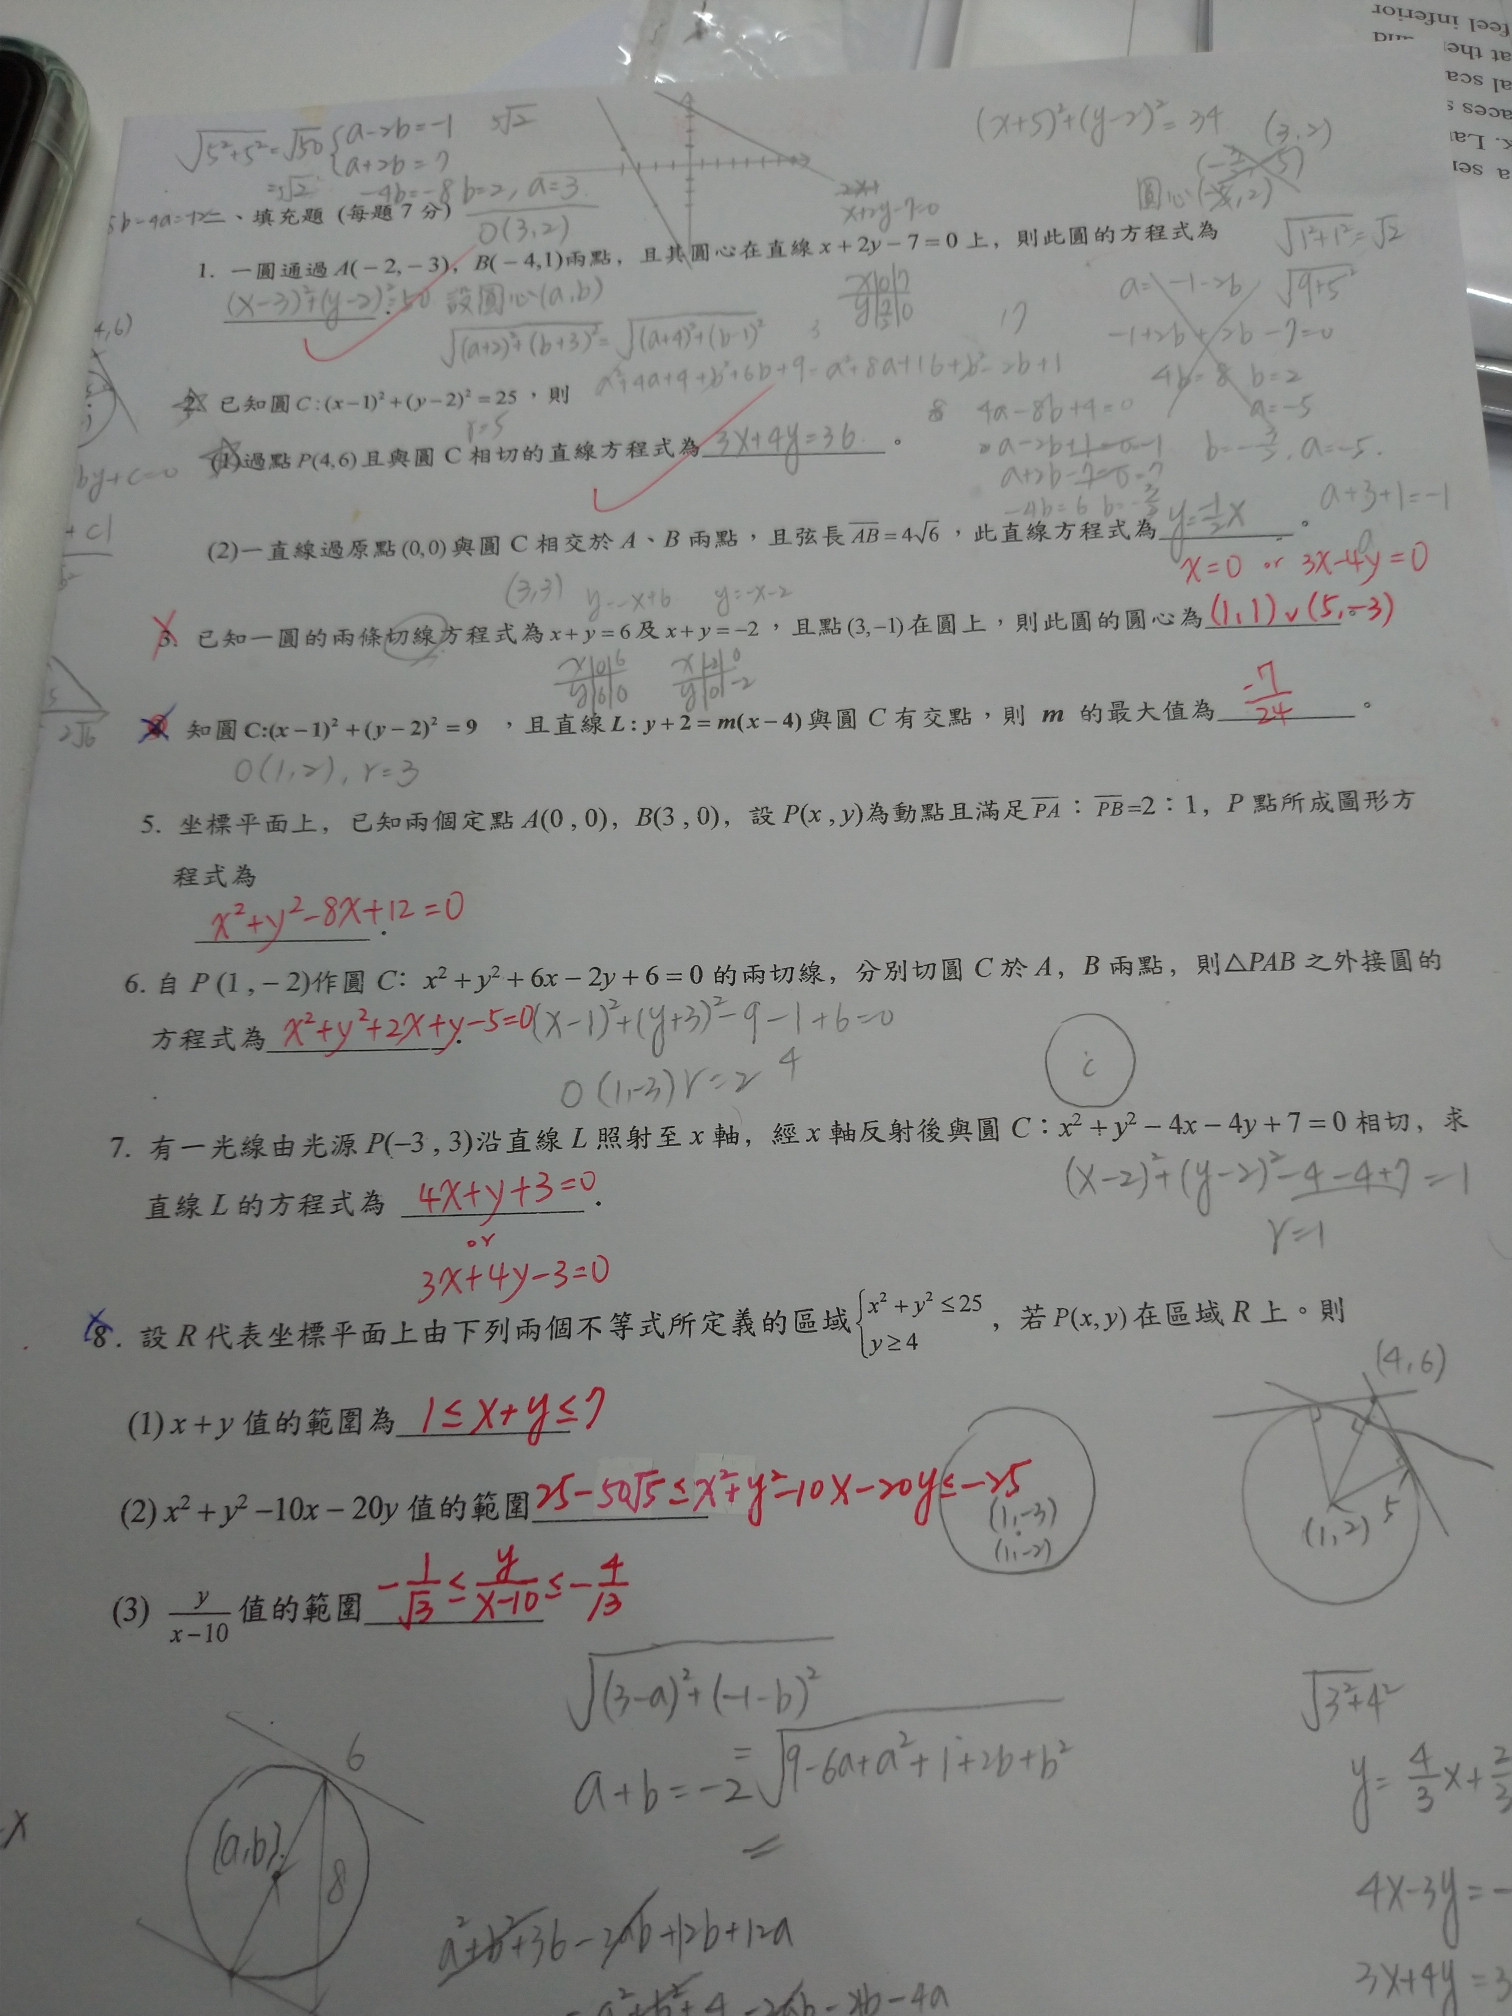 feel inferior
at the
al sca
aces s
k. La
a ser
√5²+5² = √50
=5√2
{a-2b=-1
a+2b=7
-4b=-8 b=2, a=3
5√2
(x+5)²+(y-2)²=34
(3,2)
圓心
x+2y-7=0
二、填充題 (每題 7 分)
O(3,2)
√1²+1²=√2
1. 一圓通過 A(−2,−3), B(−4,1)兩點, 且其圓心在直線 x+2y−7=0 上, 則此圓的方程式為
(x-3)²+(y-2)²=50 . 設圓心(a,b)
√(a+2)²+(b+3)² = √(a+4)²+(b-1)²
x|0|7
a=-1-2b
√9+5²
-1+2b+2b-7=0
4b=8 b=2
a=-5
a²+4a+4+b²+6b+9=a²+8a+16+b²-2b+1
4,6)
2. 已知圓 C:(x−1)²+(y−2)²=25，則
r=5
4a-8b+4=0
(1)過點 P(4,6) 且與圓 C 相切的直線方程式為 3x+4y=36 。
by+c=0
a+3+1=-1
(2)一直線過原點(0,0)與圓 C 相交於 A、B 兩點，且弦長 AB=4√6，此直線方程式為 y=-1/2x 。
x=0 or 3x-4y=0
(3,3) y=-x+6 y=-x-2
3. 已知一圓的兩條切線方程式為 x+y=6 及 x+y=−2，且點 (3,−1) 在圓上，則此圓的圓心為 (1,1) ∨ (5,-3)
x|0|6
y|6|0
x|-2|0
y|0|-2
2√6
知圓 C:(x−1)²+(y−2)²=9 ，且直線 L: y+2=m(x−4) 與圓 C 有交點，則 m 的最大值為 -7/24 。
O(1,2), r=3
5. 坐標平面上, 已知兩個定點 A(0,0), B(3,0), 設 P(x,y)為動點且滿足 PA：PB=2：1, P 點所成圖形方
程式為
x²+y²-8x+12=0 .
6. 自 P(1,−2)作圓 C: x²+y²+6x−2y+6=0 的兩切線, 分別切圓 C 於 A, B 兩點, 則△PAB 之外接圓的
方程式為 x²+y²+2x+y-5=0 . (x-1)²+(y+3)²-9-1+6=0
O(1,-3) r=2 4
7. 有一光線由光源 P(−3,3)沿直線 L 照射至 x 軸, 經 x 軸反射後與圓 C：x²+y²−4x−4y+7=0 相切, 求
(x-2)²+(y-2)²-4-4+7=-1
r=1
直線 L 的方程式為 4x+y+3=0 .
or
3x+4y-3=0
8. 設 R 代表坐標平面上由下列兩個不等式所定義的區域{x²+y²≤25
y≥4 ，若 P(x,y) 在區域 R 上。則
(4,6)
(1) x+y 值的範圍為 1≤x+y≤7
(2) x²+y²−10x−20y 值的範圍 25-50√5≤x²+y²-10x-20y≤-25
(1,-3)
(1,-2)
(1,2) 5
(3) y/x−10 值的範圍 -1/√3≤y/x-10≤-4/13
√(3-a)²+(-1-b)²
=√9-6a+a²+1+2b+b²
a+b=-2
√3²+4²
6
(a,b)
8
4x-3y=-
3x+4y=3
a²+b²+36-2ab+12b+12a